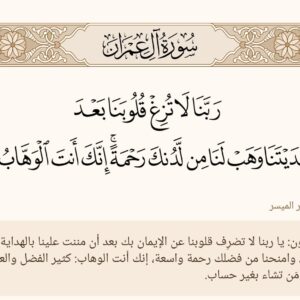 سُورَةُ آلِ عِمْرَان
رَبَّنَا لَا تُزِغْ قُلُوبَنَا بَعْدَ
هَدَيْتَنَا وَهَبْ لَنَا مِن لَّدُنكَ رَحْمَةً ۚ إِنَّكَ أَنتَ الْوَهَّابُ
الميسر
يا ربنا لا تصرف قلوبنا عن الإيمان بك بعد أن مننت علينا بالهداية
وامنحنا من فضلك رحمة واسعة، إنك أنت الوهاب: كثير الفضل
مَن تشاء بغير حساب.